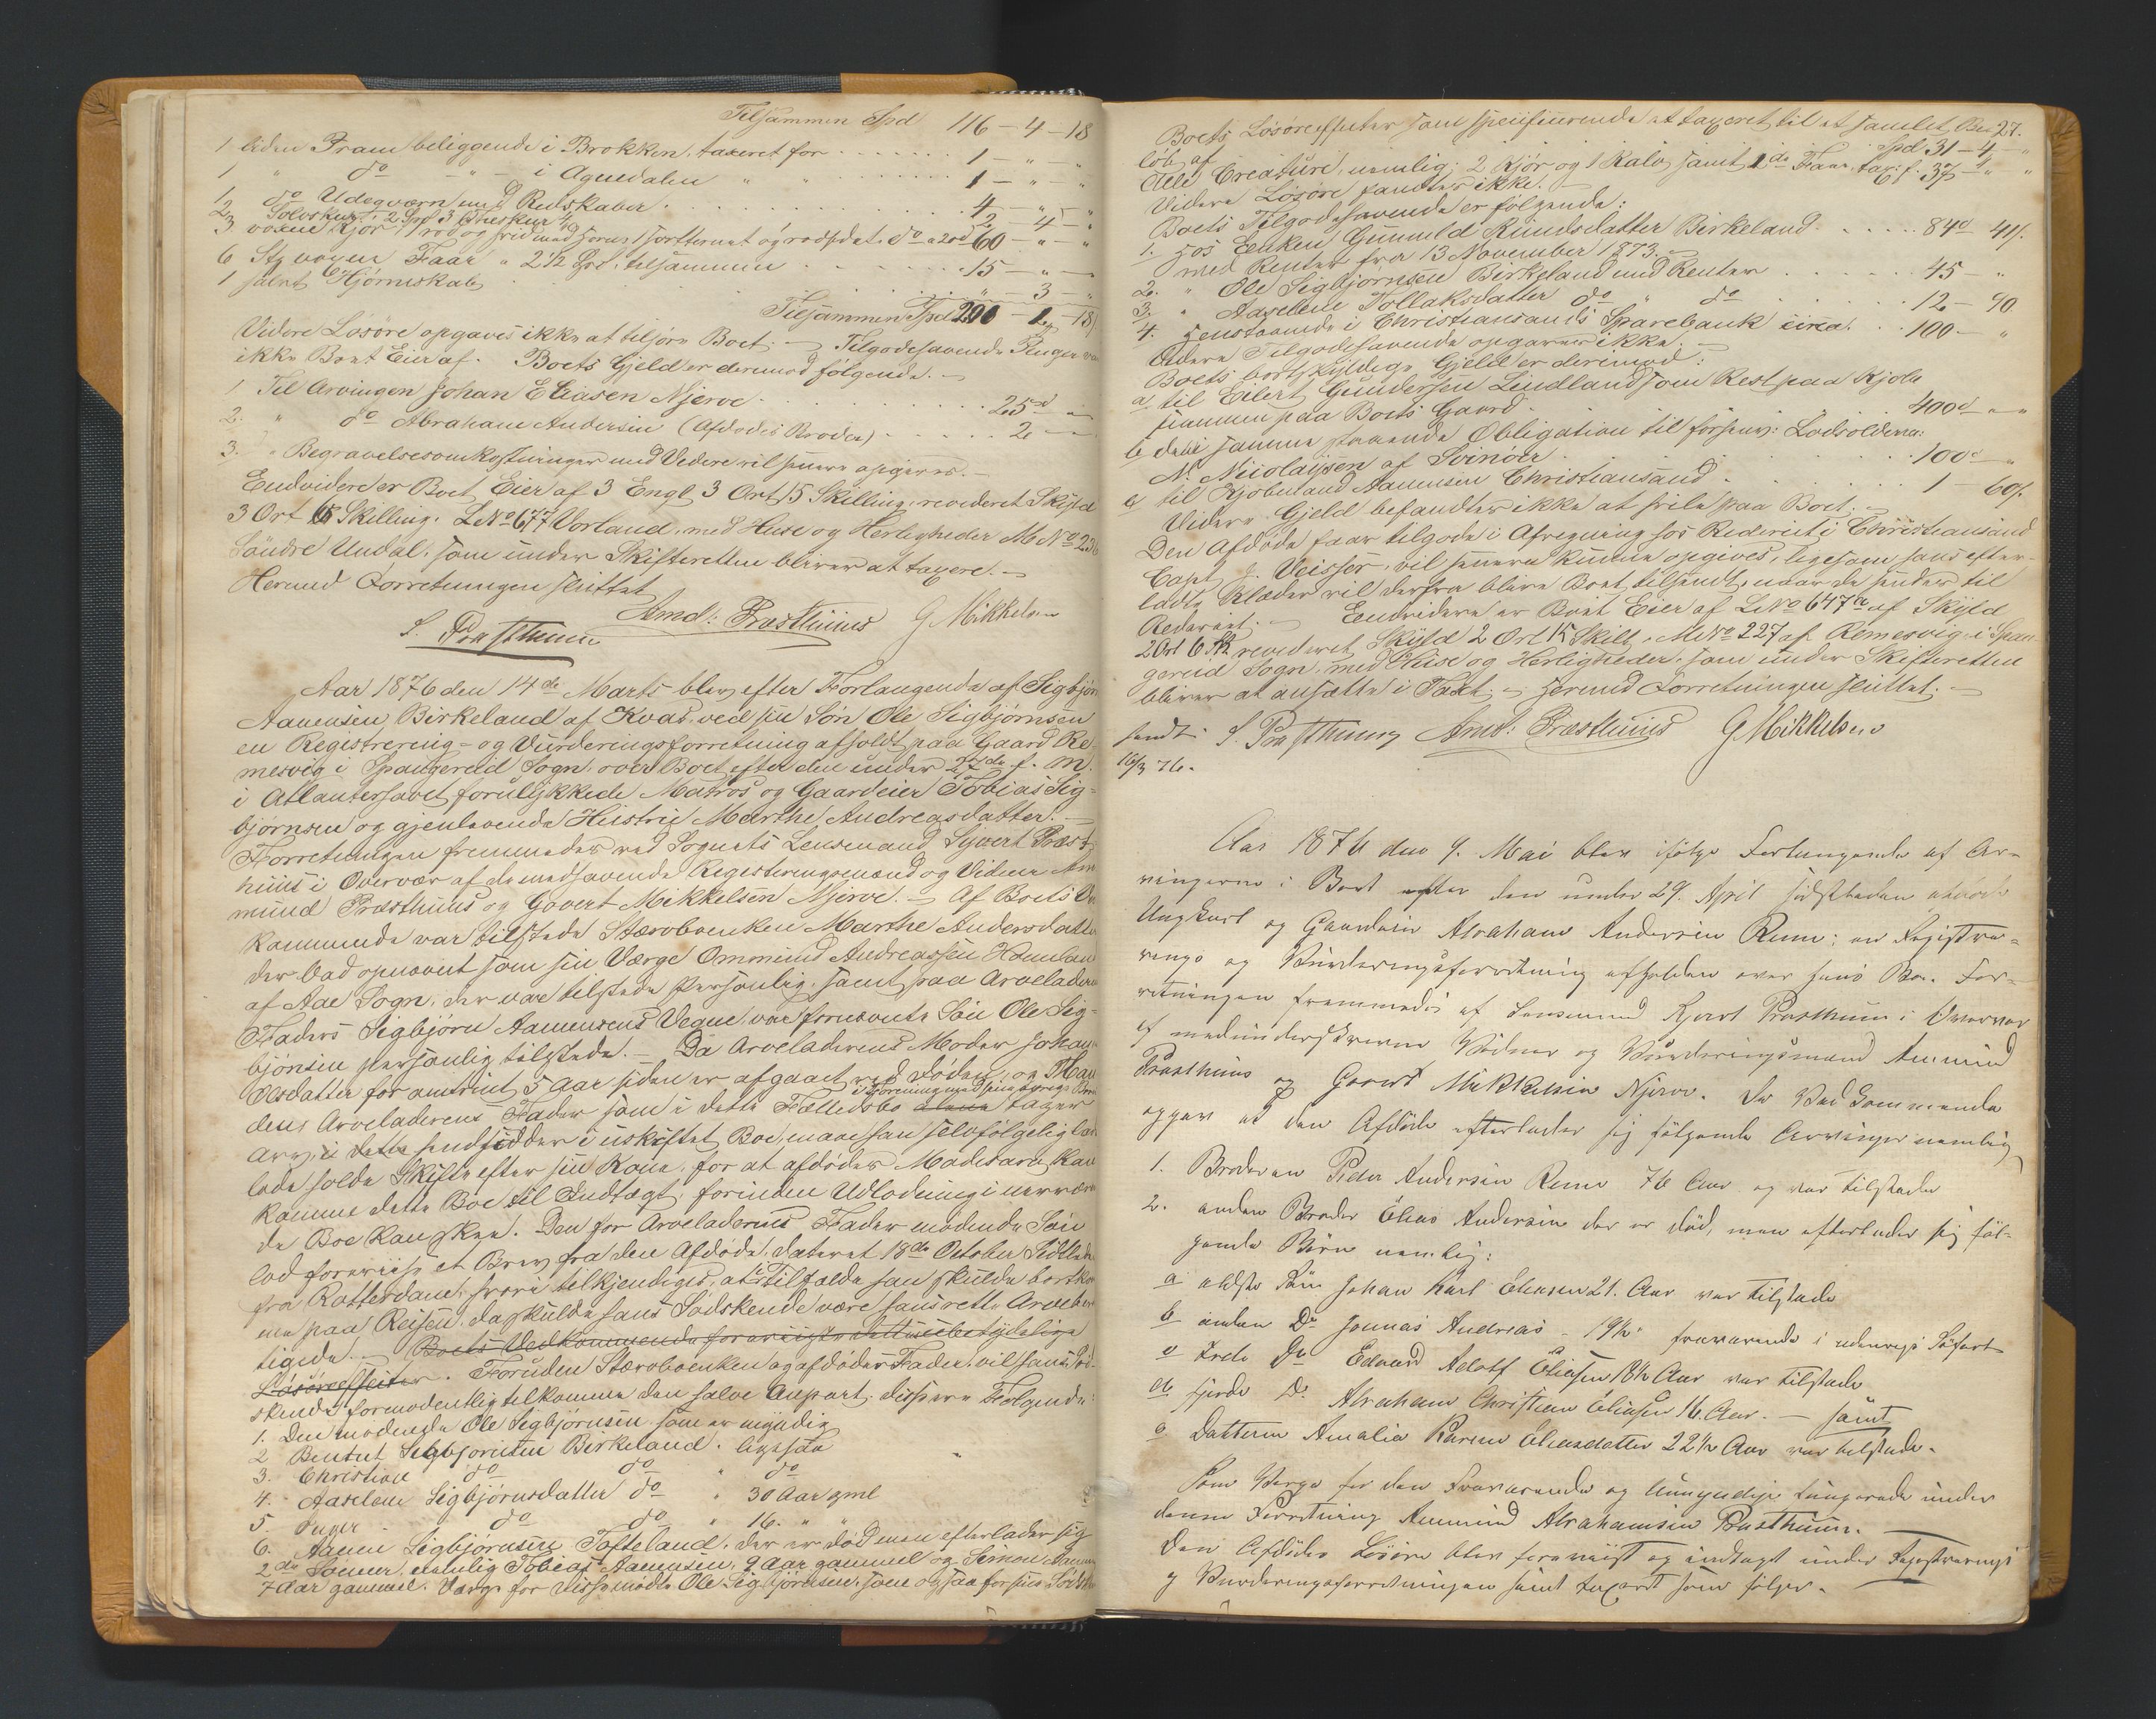 Tilsammen Spd 116 – 4 – 18
1 liden Pram beliggende i Brokken, taxeret for 1 – " – "
1 " do " – " – i Agnedalen " " 1 – " – "
1 do Udegværn med Redskaber 4 – " – "
2 2 – 4 – "
3 voxne Kjør, 60 – " – "
6 Stk voxen Faar a 2 1/2 Spd. tilsammen 15 – " – "
1 Hjørneskab " – 3 – "
Tilsammen Spd 200 – 1 – 18
Videre Løsøre opgaves ikke at tilhøre Boet. – Tilgodehavende Penge var
ikke Boet Eier af. Boets Gjeld er dermod følgende. –
1 Til Arvingen Johan Eliasen Njerve 25 –
2. " do Abraham Andersen (Afdødes Broder) 2 –
3. " Begravelsesomkostninger med Videre vil senere opgives. –
Endvidere er Boet Eier af 3 Engl 3 Ort 15 Skilling, revideret Skyld
3 Ort Skilling. L No 677 Vorland, med Huse og Herligheder M No 236
Søndre Undal, som under Skifteretten bliver at taxere. –
Hermed Forretningen sluttet
S. Præsthuus Amd: Præsthuus G Mikkelsen
Aar 1876 den 14de Marts blev efter Forlangende af Sigbjørn
Aanensen Birkeland af Kvas, ved sin Søn Ole Sigbjørnsen
en Registrering- og Vurderingsforretning afholdt paa Gaard Re-
mesvig i Spangereid Sogn, over Boet efter den under 27de f. M.
i Atlanterhavet forulykkede Matros og Gaardeier Tobias Sig-
bjørnsen og gjenlevende Hustru Marthe Andreasdatter. –
Forretningen fremmedes ved Sognets Lensmand Syvert Præst-
huus i Overvær af de medhavende Registreringsmænd og Vidner Am
mund Præsthuus og Govert Mikkelsen Njerve. – Af Boets Ved
kommende var tilstede Stervboenken Marthe Andersdatter
der bad opnævnt som sin Værge Ommund Andreassen Homlan
af Aae Sogn, der var tilstede personlig, samt paa Arveladeren
Faders Sigbjørn Aanensens Vegne var fornævnte Søn Ole Sig-
bjørnsen personlig tilstede. – Da Arveladerens Moder Johan
Olsdatter for omtrent 5 Aar siden er afgaaet ved Døden, og
dens Arveladerens Fader som i dette Fællesbo tager
Arv, i dette hensidder i uskiftet Boe, maae han selvfølgelig lad
lade holde Skifte efter sin Kone, for at afdødes Mødrearv kan
komme dette Boe til Indtægt, forinden Udlodning i nærvære
de Boe kan skee. Den for Arveladerens Fader mødende Søn
lod forevise et Brev fra den Afdøde, dateret 18de October Sidstleden
fra Rotterdam, hvori tilkjendegives, at i Tilfælde han skulde bortkom
me paa Reisen, da skulde hans Sødskende være hans rette Arvebe
tigede. – Boets Vedkommende foreviiste dettes ubetydelige
Løsøreeffecter. Foruden Stervboenken og afdødes Fader, vil hans Sød-
skende formodentlig tilkomme den halve Anpart, disse ere Følgende:
1. Den mødende Ole Sigbjørnsen som er myndig
2 Berntet Sigbjørnsen Birkeland. ligesaa
3. Christian do do " do
4. Aaselene Sigbjørnsdatter do " 30 Aar gml
5. Inger do do " 16. " "
6. Aanen Sigbjørnsen Tofteland, der er død men efterlader sig
2de Sønner, nemlig Tobias Aanensen, 9 Aar gammel og Simon Aanens
7 Aar gammel. Værge for disse mødte Ole Sigbjørnsen, som ogsaa for sine Sødske
Boets Løsøreeffecter som specificerende at taxeret til et samlet Be- 27.
løb af Spd 31 – 4 – "
Creature, nemlig: 2 Kjør og 1 Kalv, samt 1 do Faar, tax: f. 37 – " "
Videre Løsøre fandtes ikke. –
Boets Tilgodehavende er følgende:
1. Hos Enken Gunneld Rundsdatter Birkeland 84 d 41 s.
med Renter fra 13 November 1873. –
2. " Ole Sigbjørnsen Birkeland med Renter 45 – "
3. " Aaselene Tollaksdatter do " do 12 – 90
4. Henstaaende i Christiansands Sparebank circa. 100 – "
Videre Tilgodehavende opgaves ikke. –
Boets bortskyldige Gjeld er derimod:
a til Eilert Gundersen Lindland som Rest paa Kjøbe
summen paa Boets Gaard 400 d – "
b den samme staaende Obligation til forhenv: Lodsoldern:
N. Nicolaysen af Svinøer 100 d – "
c til Kjøbmand Aanensen Christiansand 1 – 60 s.
Videre Gjeld befandtes ikke at hvile paa Boet. –
Den Afdøde har tilgode i Afregning hos Rederiet i Christiansand
Capt J. Veisser, vil senere kunne opgives, ligesom hans efter-
ladte Klæder vil derfra blive Boet tilsendt, naar de sendes til
Rederiet. – Endvidere er Boet Eier af L No 647 a af Skyld
2 Ort 6 Sk revideret Skyld 2 Ort 15 Skill, M No 227 af Remesvig i Span-
gereid Sogn, med Huse og Herligheder, som under Skifteretten
bliver at ansætte i Taxt. – Hermed Forretningen sluttet. –
sendt S. Præsthuus Amd: Præsthuus G Mikkelsen
16/3 76.
Aar 1876 den 9. Mai blev ifølge Forlangende af Ar-
vingerne i Boet efter den under 29. April sidstleden afdøde
Ungkarl og Gaardeier Abraham Andersen Rem: en Registre-
rings og Vurderingsforretning afholden over hans Bo. For-
retningen fremmedes af Lensmand Syvert Præsthuus i Overvær
af medunderskrevne Vidner og Vurderingsmænd Ammund
Præsthuus og Govert Mikkelsen Njerve. De Vedkommende
opgav at den Afdøde efterlader sig følgende Arvinger nemlig
1. Broderen Peder Andersen Rem 76 Aar og var tilstede
2. anden Broder Elias Andersen der er død, men efterlader sig føl-
gende Børn nemlig:
a ældste Søn Johan Karl Eliasen 21. Aar var tilstede
b anden Do Jonnas Andreas – 19 1/2 fraværende i udenrigs Søfart
c tredie Do Edvard Adolf Eliasen 18 1/2 Aar var tilstede
d fjerde Do Abraham Christian Eliasen 16. Aar. – samt
e Datteren Amalia Karine Eliasdatter 22 1/2 Aar var tilstede.
Som Værge for den Fraværende og Umyndige fungerede under
denne Forretning Ammund Abrahamsen Præsthuus. –
Den Afdødes Løsøre blev foreviist og indtaget under Registrerings
og Vurderingsforretningen samt taxeret som følger.